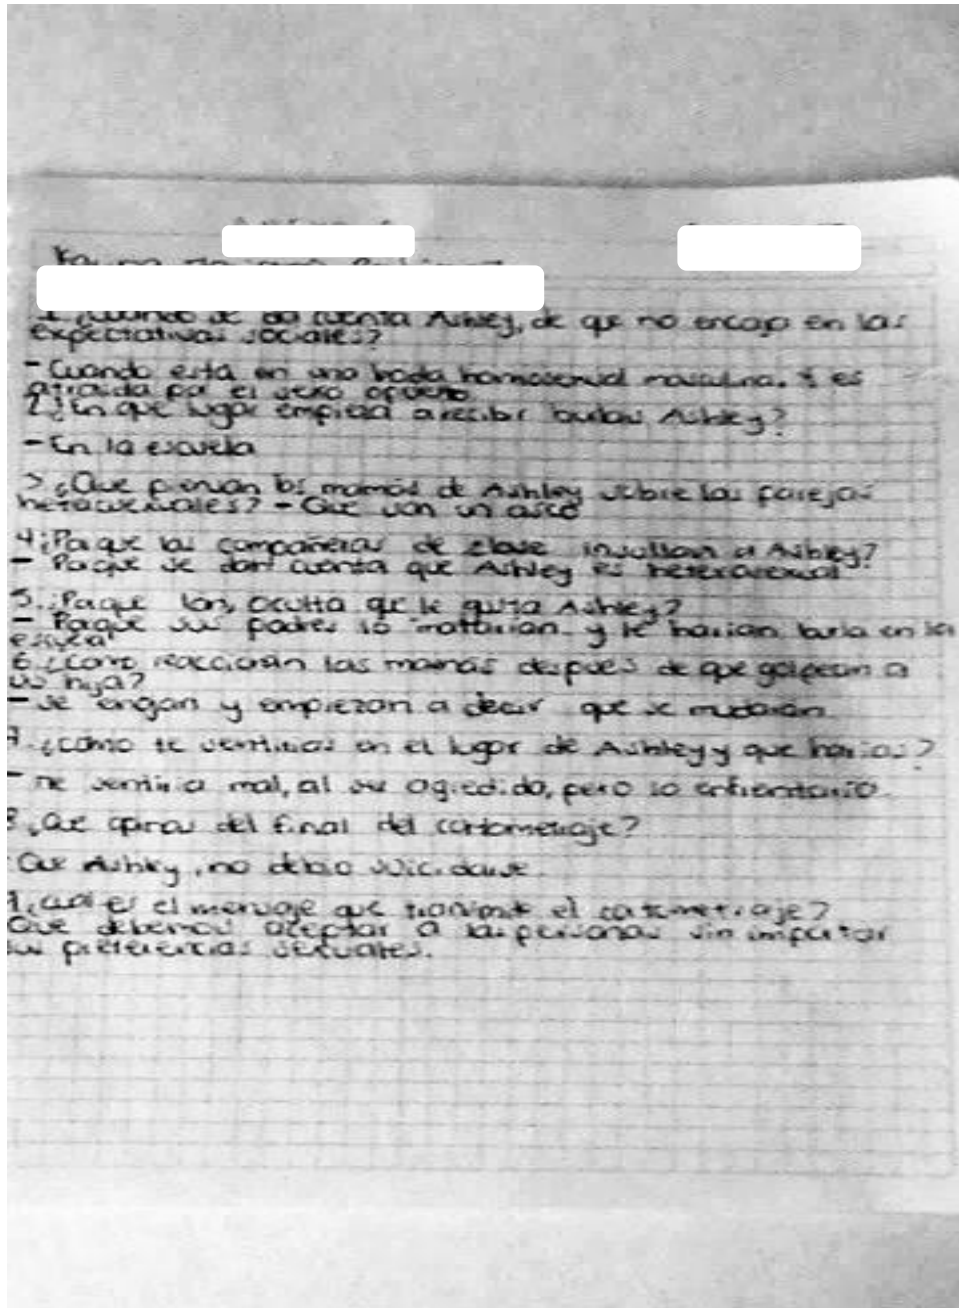 1. ¿Cuando se da cuenta Ashley, de que no encaja en las
expectativas sociales?
- Cuando está en una boda homosexual masculina. Y es
atraida por el sexo opuesto
2. ¿En que lugar empieza a recibir burlas Ashley?
- En la escuela
3 ¿Que piensan las mamás de Ashley sobre las parejas
heterosexuales? - Que son un asco
4 ¿Porque las compañeras de clase insultan a Ashley?
- Porque se dan cuenta que Ashley es heterosexual
5. ¿Porque Ian, oculta que le gusta Ashley?
- Porque sus padres lo matarian y le harian burla en la
escuela
6 ¿Como reaccionan las mamás despues de que golpean a
su hija?
- se enojan y empiezan a decir que se mudaran
7. ¿Cómo te sentirias en el lugar de Ashley y que harias?
- me sentiria mal, al ser agredido, pero lo enfrentaria
8 ¿Que opinas del final del cortometraje?
Que Ashley, no debio suicidarse
9 ¿Cual es el mensaje que transmite el cortometraje?
Que debemos aceptar a las personas sin importar
sus preferencias sexuales.